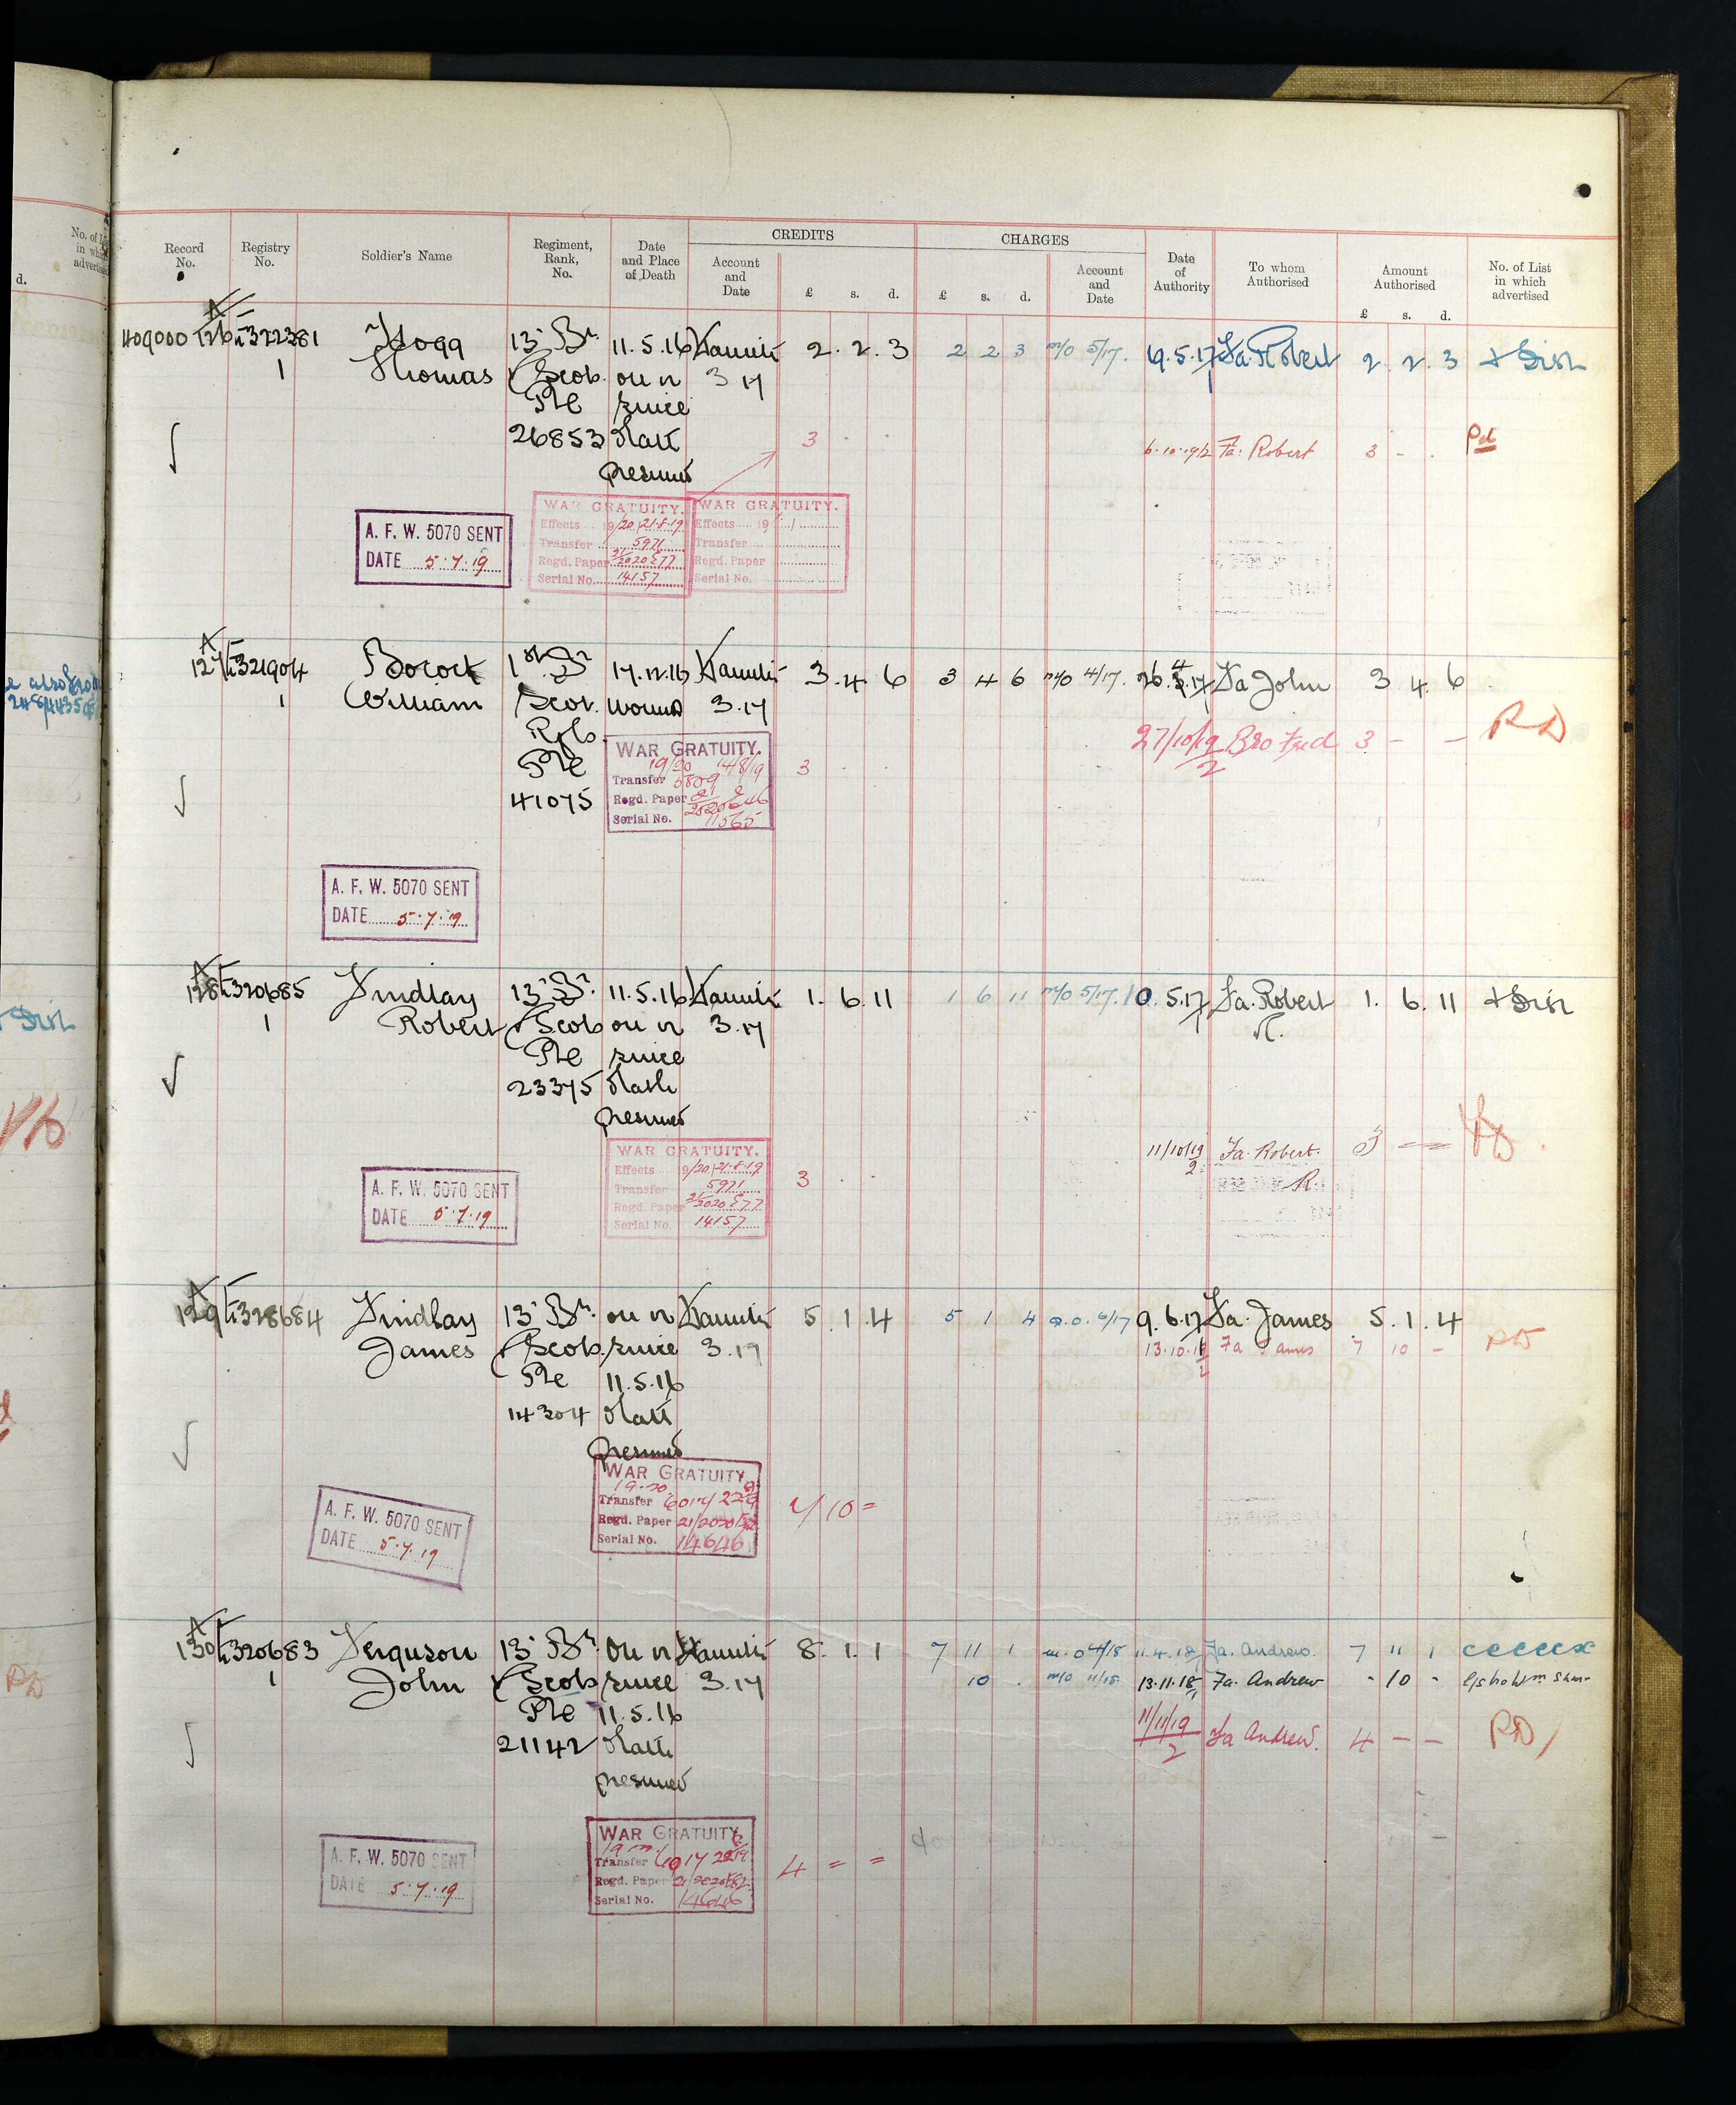 Record No.
Registry No.
Soldier's Name
Regiment, Rank, No.
Date and Place of Death
CREDITS
Account and Date
£ s. d.
CHARGES
£ s. d.
Account and Date
Date of Authority
To whom Authorised
Amount Authorised
£ s. d.
No. of List in which advertised
409000 126 322381 Hogg 13 Bn 11.5.16 2. 2. 3 2 2 3 m/o 5/17. 19.5.17 Fa. Robert 2. 2. 3
1 Thomas Scots. on or 3 17
Pte since
26853 death 3 . . Fa: Robert 3 - . Pd
presumed
WAR GRATUITY. WAR GRATUITY.
A. F. W. 5070 SENT Effects 19/20 21.8.19 Effects 19 /
DATE 5.7.19 Transfer 5971 Transfer
Regd. Paper Regd. Paper
Serial No. 14157 Serial No.
127 321904 Bocock 1st Bn 17.12.16 3. 4. 6 3 4 6 m/o 4/17. Fa John 3 4. 6
1 William Scot. wounds 3.17
Rifs 27/10/19 Bro Fred 3 - - PD
Pte WAR GRATUITY. 3 . . 2
41075 19/20 14/8/19
Transfer 5809
Regd. Paper
Serial No. 11565
A. F. W. 5070 SENT
DATE 5.7.19
128 320685 Findlay 13 Bn. 11.5.16 1. 6. 11 1 6 11 m/o 5/17. 10.5.17 Fa. Robert 1. 6. 11
1 Robert Scots on or 3.17 R.
Pte since
23375 death
presumed
WAR GRATUITY. 11/10/19 Fa. Robert. 3
A. F. W. 5070 SENT Effects 19/20 21.8.19 3 . . 2 R.
DATE 5.7.19 Transfer 5971
Regd. Paper
Serial No. 14157
129 328684 Findlay 13 Bn. on or 5. 1. 4 5 1 4 6/17 9.6.17 Fa. James 5. 1. 4
James Scots. since 3.17 Fa James 7 10 - PD
Pte 11.5.16
14304 death
presumed
WAR GRATUITY
A. F. W. 5070 SENT Transfer
DATE 5.7.19 Regd. Paper
Serial No. 14646
130 320683 Ferguson 13 Bn On or 8. 1. 1 7 11 1 m.o 4/18 11.4.18 Fa. Andrew. 7 11 1
1 John Scots since 3.17 10 . m/o 11/18 13.11.18 Fa. Andrew - 10 -
Pte 11.5.16 11/11/19 Fa Andrew. 4 - - PD
21142 death 2
presumed
WAR GRATUITY
A. F. W. 5070 SENT Transfer 4 = =
DATE 5.7.19 Regd. Paper
Serial No.